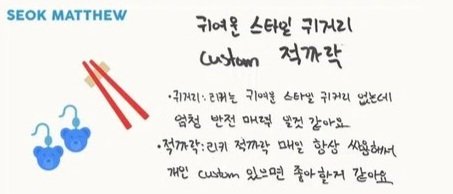 SEOK MATTHEW
귀여운 스타일 귀거리
custom 적까락
• 귀거리 : 리키는 귀여운 스타일 귀거리 없는데
엄청 반전 매력 일것 같아요
• 적까락 : 리키 적까락 매일 항상 싸용해서
개인 custom 있으면 좋아할거 같아요